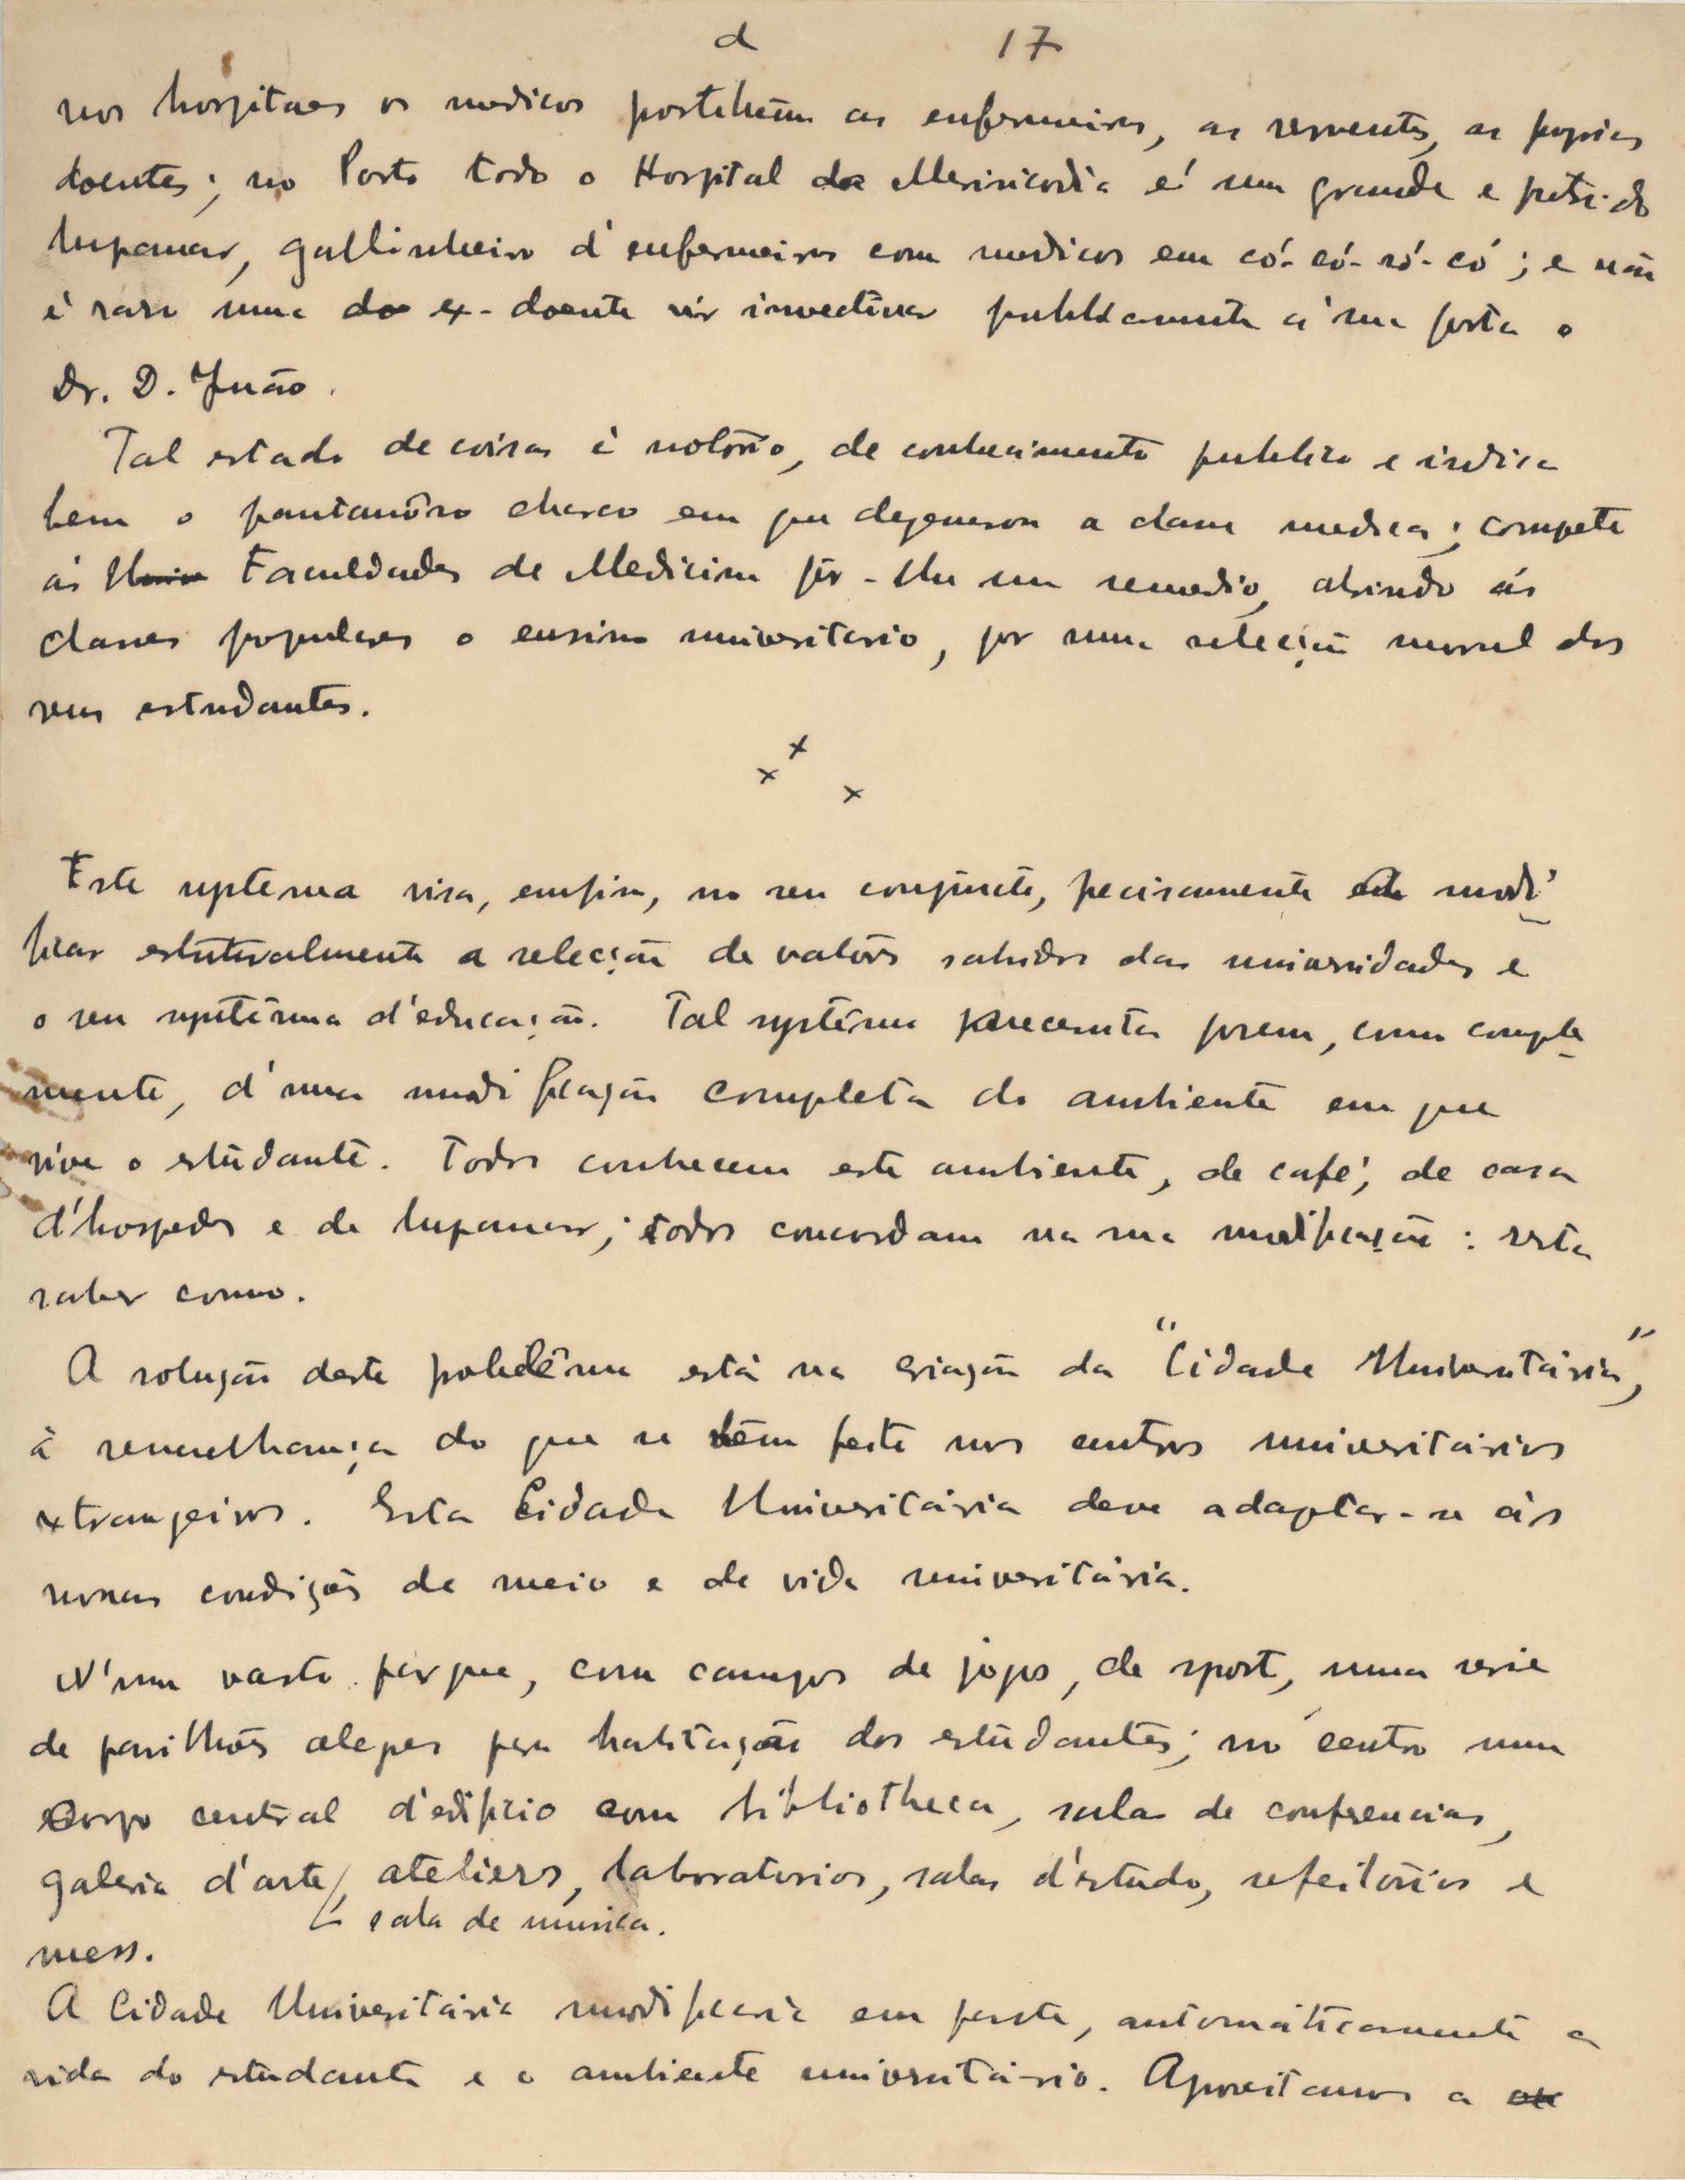 d 17
nos hospitaes os medicos postituem as enfermeiras, as serventes, as proprias
doentes; no Porto todo o Hospital da Misericordia é um grande e putrido
lupanar, gallinheiro d'enfermeiras com medicos em có-có-ró-có; e não
é raro uma ex-doente vir invectivar publicamente á sua porta o
Dr. D. Juão.
Tal estado de coisas é notório, de conhecimento publico e indica
bem o pantanôso charco em que degenerou a classe medica; compete
ás Faculdades de Medicina pôr-lhe um remedio, abrindo ás
classes populares o ensino universitario, por uma seleção moral dos
seus estudantes.
x x x
Este systema visa, emfim, no seu conjuncto, precisamente modi-
ficar estruturalmente a selecção de valôres sahidos das universidades e
o seu systêma d'educação. Tal systêma necessita porem, como comple-
mento, d'uma modificação completa do ambiente em que
vive o estudante. Todos conhecem este ambiente, de café, de casa
d'hospedes e de lupanar; todos concordam na sua modificação: resta
saber como.
A solução deste problêma está na criação da "Cidade Universitária",
à semelhança do que se têm feito nos centros universitários
extrangeiros. Esta Cidade Universitária deve adaptar-se às
nossas condições de meio e de vida universitária.
N'um vasto parque, com campos de jogos, de sport, uma serie
de pavilhões alegres para habitação dos estudantes; no centro um
corpo central d'edificio com bibliotheca, sala de conferencias,
galeria d'arte, ateliers, laboratorios, salas d'estudo, refeitórios e
sala de musica.
mess.
A Cidade Universitária modificaria em parte, automáticamente a
vida do estudante e o ambiente universitário. Aproveitamos a